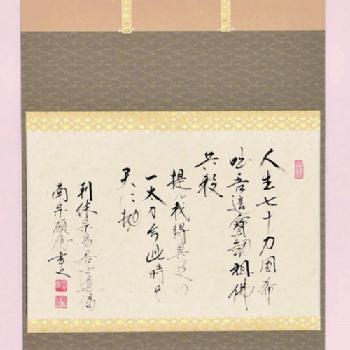 人生七十力囲希
咄吾這寶剣祖佛
共殺
提ル我得具足の
一太刀今此時そ
天に抛
利休宗易居士遺偈
南宗書之